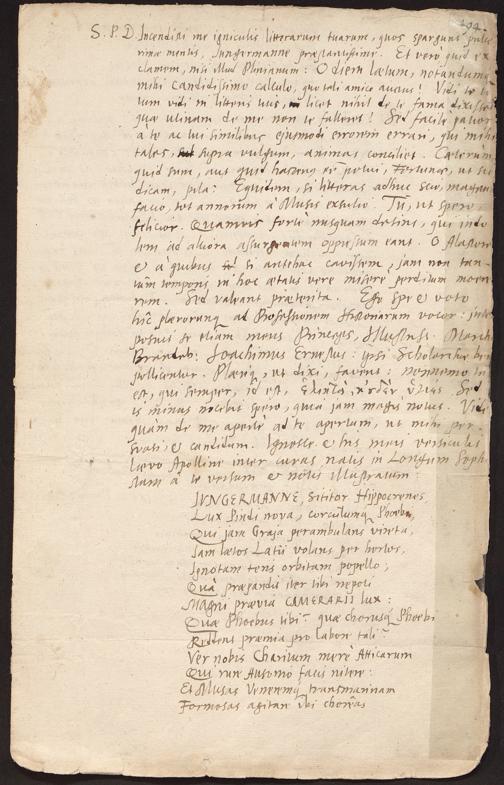 S. P. D. Incendisti me igniculis litterarum tuarum, quos spargunt
mentis, Jungermanne præstantissime. Et vero quid
clamem, nisi illud Plinianum: O diem lætum, notandumq
mihi candidissimo calculo, quo tali amico auctus! Vidi te
tum vidi in litteris tuis, licet nihil de te fama dixisset
quæ utinam de me non te falleret! Sed facile patior
à te ac tui similibus ejusmodi errorem errari, qui mihi
tales, supra vulgum, animas conciliet. Cæterum
quid sum, aut quid hactenq esse potui, Fortunæ, ut sic
dicam, pila? Equidem, si litteras adhuc scio, magnum
facio, tot annorum à Musis exsulio. Tu, ut spero
felicior. Quamvis forte nusquam desins, qui
lem ad altiora assurgentem oppressum eant. O
è à quibus si antehac cavissem, jam non tan-
tum temporis in hoc ætatis vere misere perditum
rem. Sed valeant præterita. Ego spe et voto
hic plærorunq ad Professionem Historiarum vocor:
posuit se etiam meus Princeps, Illustriss. March.
Brandeb: Joachimus Ernestus: ipsi Scholarchæ
pollicentur. Pleriq, ut dixi, favent: nonnemo
est, qui semper, id est, Sed
is minus nocebit spero, quia jam magis notus. Vides
quam de me aperte ad te apertum, ut mihi per-
suasi, et candidum. Ignosce et his meis versiculis
lævo Apolline inter curas natis in Longum Sophi-
stam à te versum et notis illustratum:
JUNGERMANNE, sititor Hippocrenes
Lux Pindi nova, corculumq Phoebi,
Qui jam Graja perambulans vireta,
Jam lætos Latii volans per hortos,
Ignotam tens orbitam popello,
Quà præpandit iter tibi nepoti
Magni prævia CAMERARII lux:
Quæ Phoebus tibi? quæ chorusq Phoebi
Reddent præmia pro labore tali?
Ver nobis Charitum mere Atticarum
Qui rure Ausonio facis nitere:
Et Musas Veneremq transmarinam
Formosas agitare ibi choreas